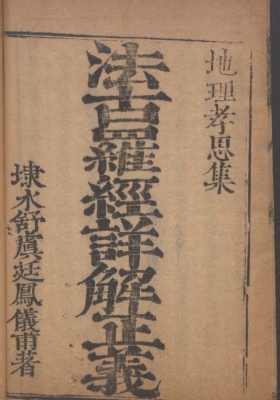 地理孝思集
法古羅經詳解正義
埭水舒虞廷鳳儀甫著